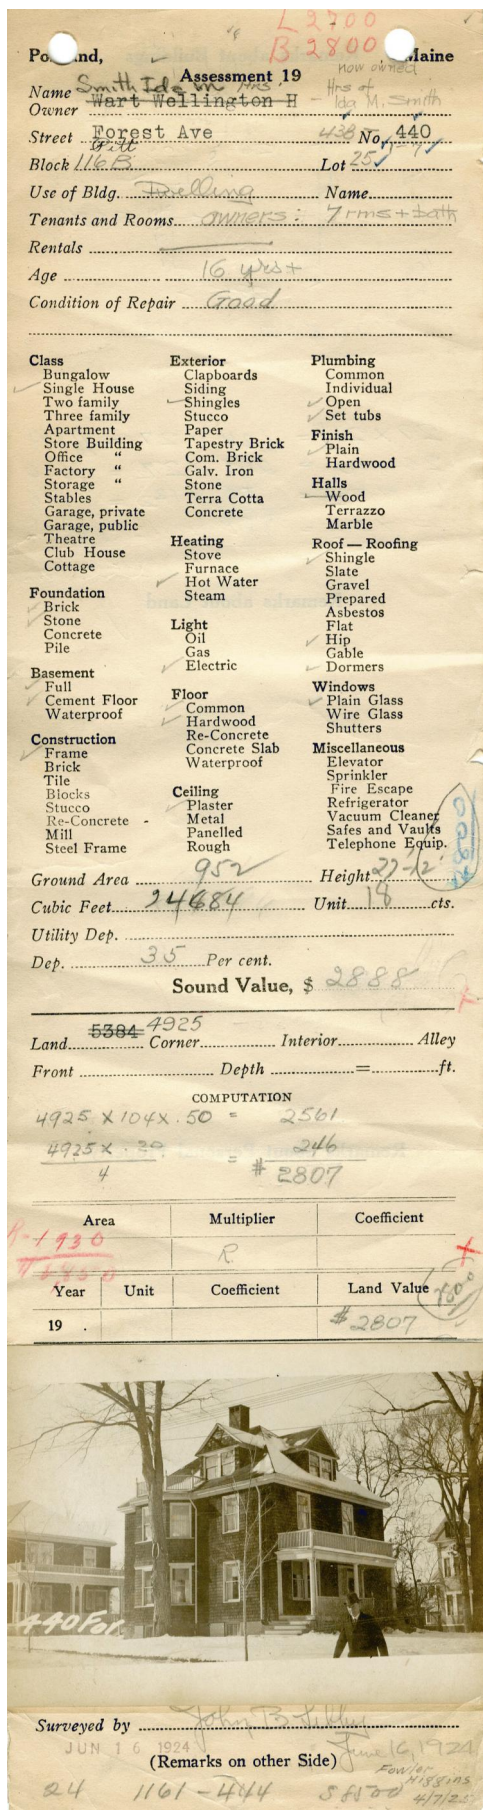 L 2700
B 2800
Portland, Maine
Assessment 19
now owned
Name Smith Ida M Hrs. Hrs of
Owner Wart Wellington H - Ida M. Smith
Street Forest Ave 438- No. 440
Pitt 5-7
Block 116B Lot 25
Use of Bldg. Dwelling Name
Tenants and Rooms owners: 7 rms + bath
Rentals
Age 16 yrs +
Condition of Repair Good
Class
Bungalow
Single House
Two family
Three family
Apartment
Store Building
Office "
Factory "
Storage "
Stables
Garage, private
Garage, public
Theatre
Club House
Cottage
Foundation
Brick
Stone
Concrete
Pile
Basement
Full
Cement Floor
Waterproof
Construction
Frame
Brick
Tile
Blocks
Stucco
Re-Concrete -
Mill
Steel Frame
Exterior
Clapboards
Siding
Shingles
Stucco
Paper
Tapestry Brick
Com. Brick
Galv. Iron
Stone
Terra Cotta
Concrete
Heating
Stove
Furnace
Hot Water
Steam
Light
Oil
Gas
Electric
Floor
Common
Hardwood
Re-Concrete
Concrete Slab
Waterproof
Ceiling
Plaster
Metal
Panelled
Rough
Plumbing
Common
Individual
Open
Set tubs
Finish
Plain
Hardwood
Halls
Wood
Terrazzo
Marble
Roof — Roofing
Shingle
Slate
Gravel
Prepared
Asbestos
Flat
Hip
Gable
Dormers
Windows
Plain Glass
Wire Glass
Shutters
Miscellaneous
Elevator
Sprinkler
Fire Escape
Refrigerator
Vacuum Cleaner
Safes and Vaults
Telephone Equip.
Ground Area 952 Height 27-12
Cubic Feet 24684 Unit 18 cts.
Utility Dep.
Dep. 35 Per cent.
Sound Value, $ 2888
Land 5384 4925 Corner Interior Alley
Front Depth = ft.
COMPUTATION
4925 x 104 x .50 = 2561
4925 x .20 = 246
4 # 2807
Area Multiplier Coefficient
R-1930
R
Year Unit Coefficient Land Value
19 . $ 2807
440 For
Surveyed by John B Libby
JUN 16 1924 June 16, 1924
(Remarks on other Side)
Fowler
Higgins
24 1161-444 $8500 4/7/25